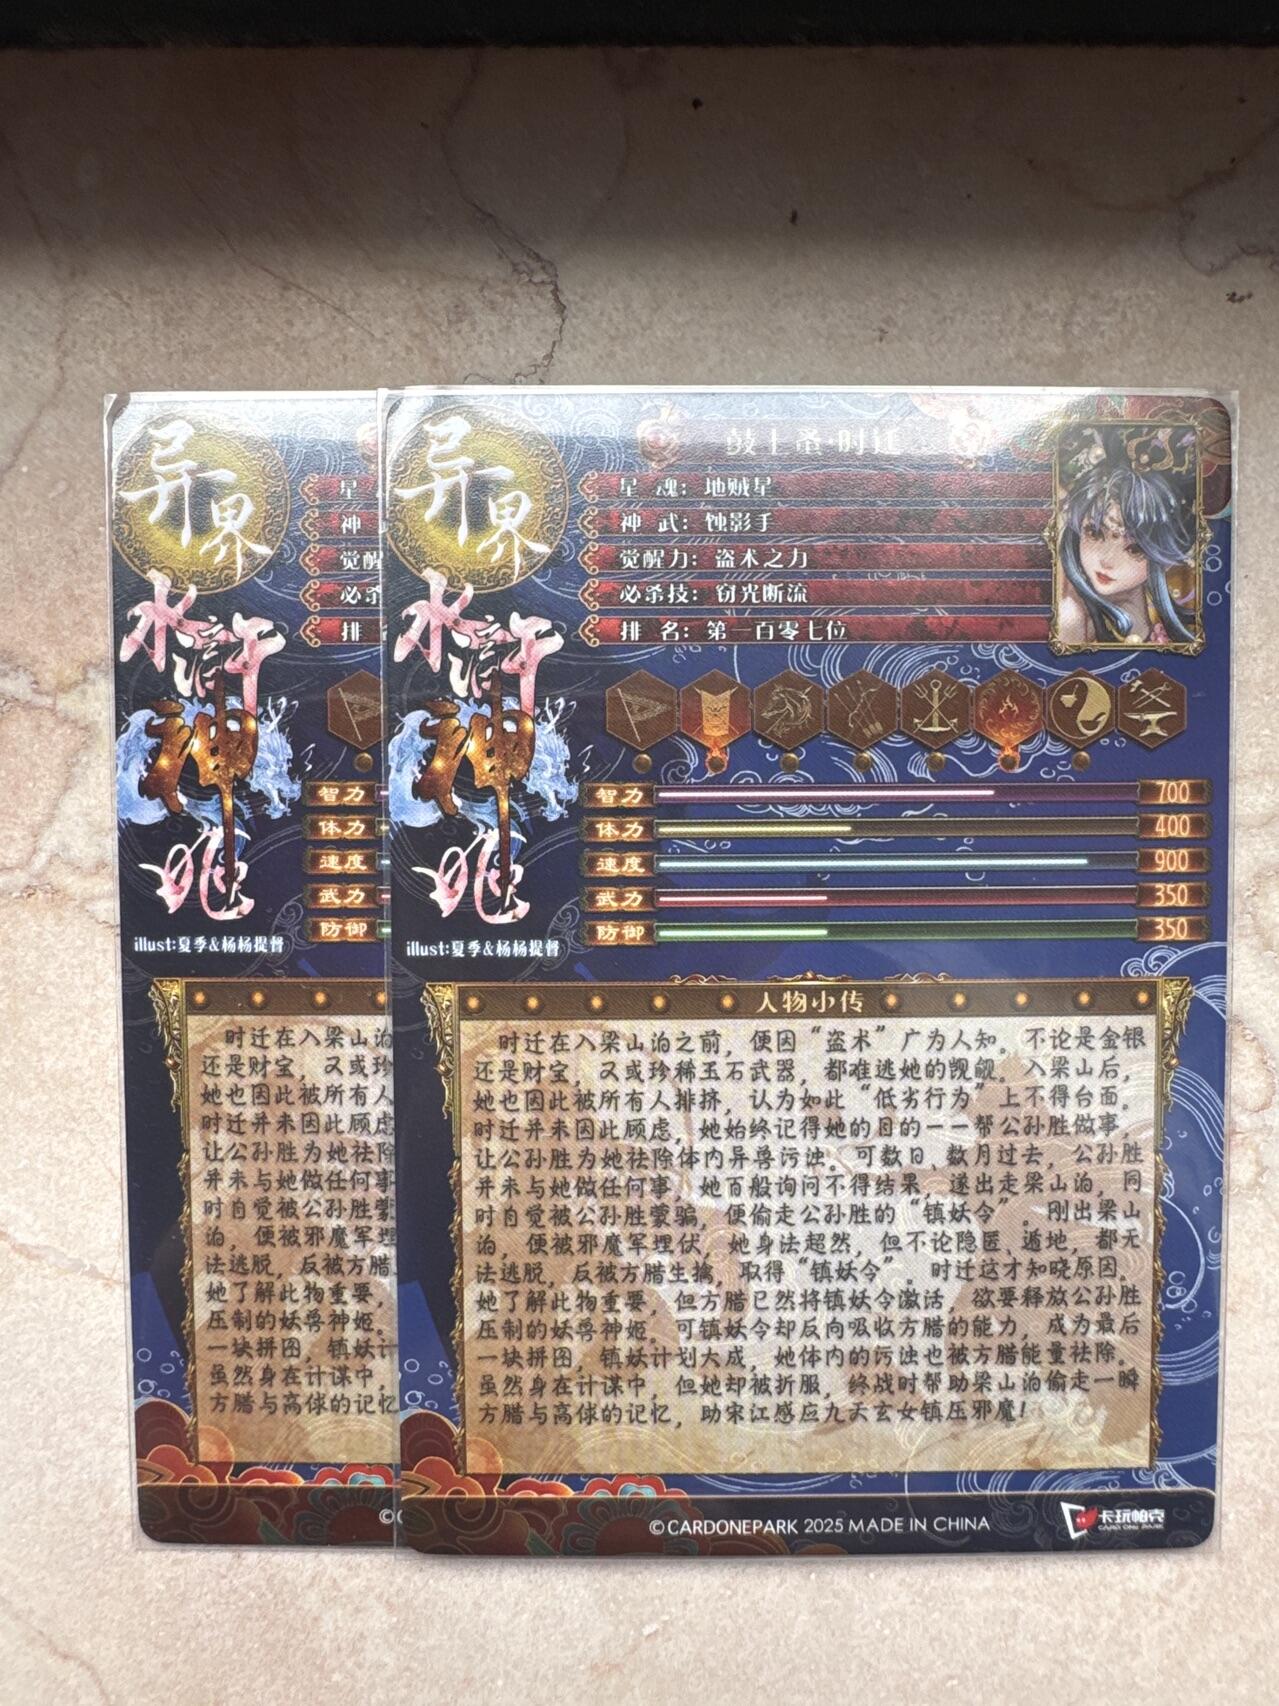 异界
水浒
神
姬
illust:夏季&杨杨提督
星
神
觉醒
必杀
排
智力
体力
速度
武力
防御
时迁在入梁山泊
还是财宝，又或珍
她也因此被所有人
时迁并未因此顾虑
让公孙胜为她祛除
并未与她做任何事
时自觉被公孙胜蒙
泊，便被邪魔军埋
法逃脱，反被方腊
她了解此物重要，
压制的妖兽神姬。
一块拼图，镇妖计
虽然身在计谋中，
方腊与高俅的记忆
©
异界
水浒
神
姬
illust:夏季&杨杨提督
鼓上蚤·时迁
星 魂：地贼星
神 武：蚀影手
觉醒力：盗术之力
必杀技：窃光断流
排 名：第一百零七位
智力 700
体力 400
速度 900
武力 350
防御 350
人物小传
时迁在入梁山泊之前，便因“盗术”广为人知。不论是金银
还是财宝，又或珍稀玉石武器，都难逃她的觊觎。入梁山后，
她也因此被所有人排挤，认为如此“低劣行为”上不得台面。
时迁并未因此顾虑，她始终记得她的目的——帮公孙胜做事，
让公孙胜为她祛除体内异兽污浊。可数日、数月过去，公孙胜
并未与她做任何事，她百般询问不得结果，遂出走梁山泊，同
时自觉被公孙胜蒙骗，便偷走公孙胜的“镇妖令”。刚出梁山
泊，便被邪魔军埋伏，她身法超然，但不论隐匿、遁地，都无
法逃脱，反被方腊生擒，取得“镇妖令”。时迁这才知晓原因。
她了解此物重要，但方腊已然将镇妖令激活，欲要释放公孙胜
压制的妖兽神姬。可镇妖令却反向吸收方腊的能力，成为最后
一块拼图，镇妖计划大成，她体内的污浊也被方腊能量祛除。
虽然身在计谋中，但她却被折服，终战时帮助梁山泊偷走一瞬
方腊与高俅的记忆，助宋江感应九天玄女镇压邪魔！
©CARDONEPARK 2025 MADE IN CHINA
卡玩帕克
CARD ONE PARK